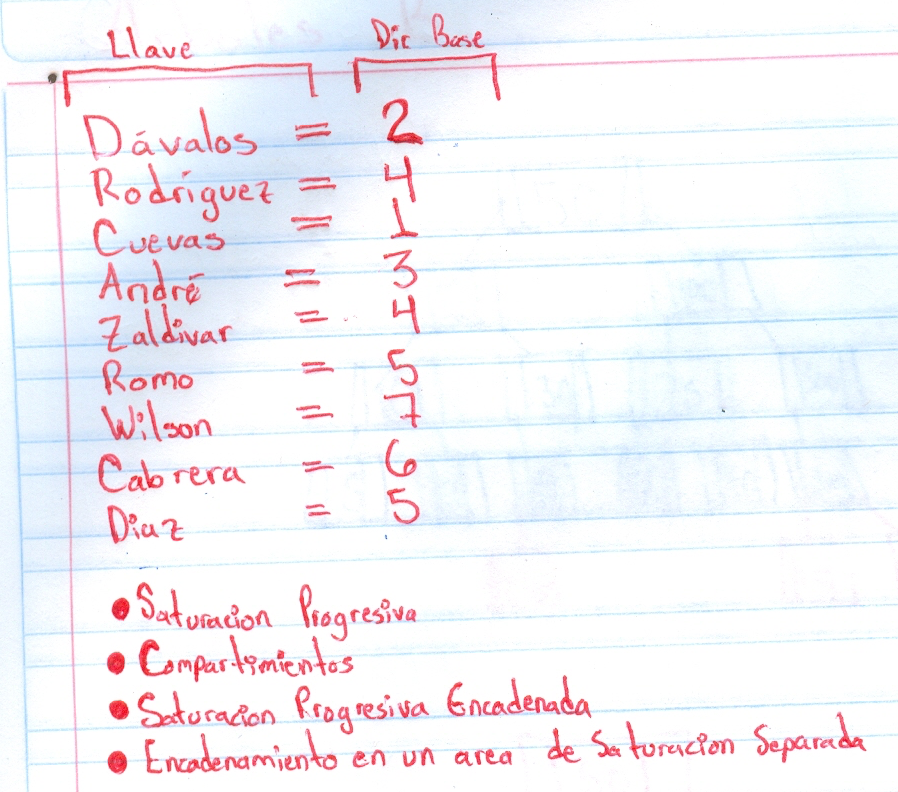 Llave Dir Base
Dávalos = 2
Rodríguez = 4
Cuevas = 1
André = 3
Zaldivar = 4
Romo = 5
Wilson = 7
Cabrera = 6
Diaz = 5
• Saturacion Progresiva
• Compartimientos
• Saturacion Progresiva Encadenada
• Encadenamiento en un area de Saturacion Separada